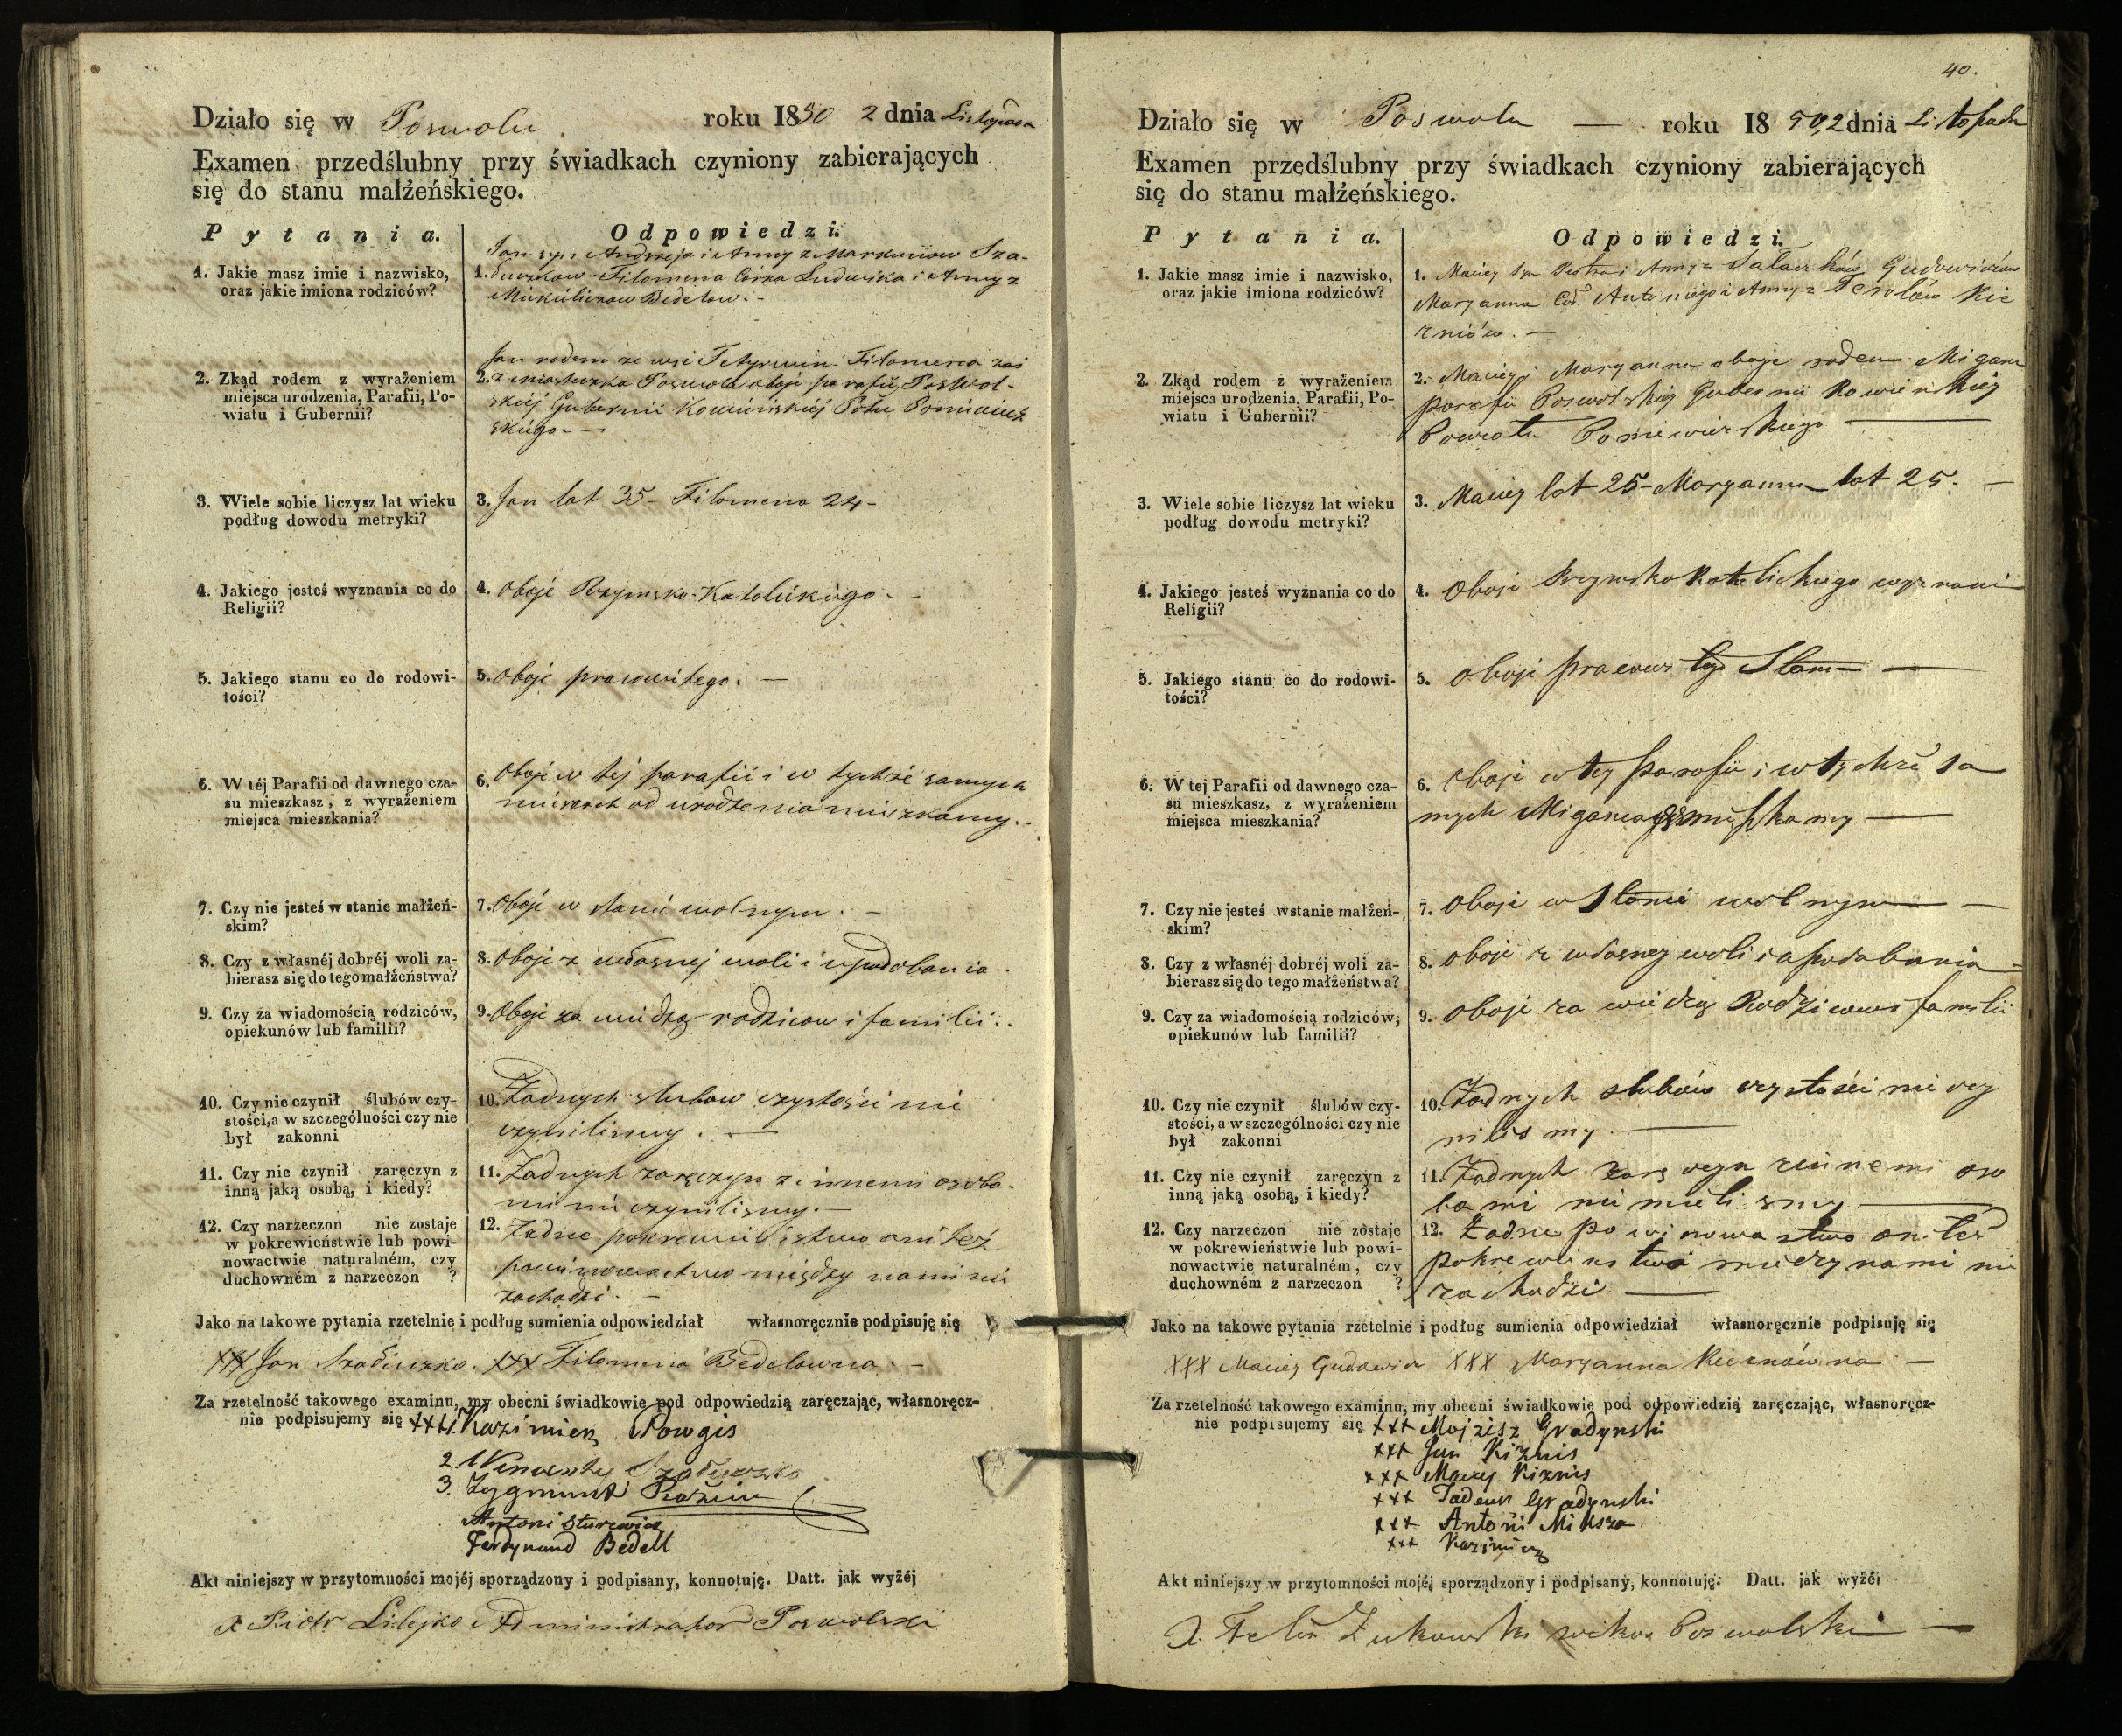 Działo się w Poswolu. roku 1850 2 dnia Listopada
Examen przedślubny przy świadkach czyniony zabierających
się do stanu małżeńskiego.
Pytania. Odpowiedzi.
1. Jakie masz imie i nazwisko,
oraz jakie imiona rodziców?
Jan syn Andrzeja i Anny z Markuniow Sza-
1. duszkow - Filomena Córka Ludwika i Anny z
Mikuliczow Bedelow. -
2. Zkąd rodem z wyrażeniem
miejsca urodzenia, Parafii, Po-
wiatu i Gubernii?
Jan rodem ze wsi Filomena zaś
2. z miasteczka Poswola oboje parafii Poswol-
skiéj Gubernii Kowieńskiéj Pttu Poniewież
skiego. -
3. Wiele sobie liczysz lat wieku
podług dowodu metryki?
3. Jan lat 35 - Filomena 24 -
4. Jakiego jesteś wyznania co do
Religii?
4. Oboje Rzymsko-Katolickiego. -
5. Jakiego stanu co do rodowi-
tości?
5. Oboje prawowitego. -
6. W téj Parafii od dawnego cza-
su mieszkasz, z wyrażeniem
miejsca mieszkania?
6. Oboje w tej parafii i w tychże samych
miejscach od urodzenia mieszkamy. -
7. Czy nie jesteś w stanie małżeń-
skim?
7. Oboje w stanie wolnym. -
8. Czy z własnéj dobréj woli za-
bierasz się do tego małżeństwa?
8. Oboje z własnej woli i upodobania. -
9. Czy za wiadomością rodziców,
opiekunów lub familii?
9. Oboje za wiedzą rodzicow i familii. -
10. Czy nie czynił ślubów czy-
stości, a w szczególności czy nie
był zakonni
10. Żadnych slubow czystości nie
czynilismy. -
11. Czy nie czynił zaręczyn z
inną jaką osobą, i kiedy?
11. Żadnych zaręczyn z innemi osoba-
mi nie czynilismy. -
12. Czy narzeczon nie zostaje
w pokrewieństwie lub powi-
nowactwie naturalném, czy
duchowném z narzeczon ?
12. Żadne pokrewieństwo ani też
powinowactwo między nami nie
zachodzi. -
Jako na takowe pytania rzetelnie i podług sumienia odpowiedział własnoręcznie podpisuję się
XXX Jan Szaduszko. XXX Filomena Bedelowna. -
Za rzetelność takowego examinu, my obecni świadkowie pod odpowiedzią zaręczając, własnoręcz-
nie podpisujemy się XXX 1. Kazimierz Powgis
2. Wincenty Szaduszko
3. Zygmunt
Antoni
Ferdynand Bedell
Akt niniejszy w przytomności mojéj sporządzony i podpisany, konnotuję. Datt. jak wyżéj
X Piotr Lilejko Administrator Poswolski
40.
Działo się w Poswolu — roku 1850, 2 dnia Listopada
Examen przedślubny przy świadkach czyniony zabierających
się do stanu małżeńskiego.
Pytania. Odpowiedzi.
1. Jakie masz imie i nazwisko,
oraz jakie imiona rodziców?
1. Maciey Syn Piotra i Anny z Gudowiczow
Maryanna Cór. Antoniego i Anny z Kie
zniów. -
2. Zkąd rodem z wyrażeniem
miejsca urodzenia, Parafii, Po-
wiatu i Gubernii?
2. Maciey i Maryanna oboje rodem
parafii Poswolskiéj Gubernii Kowieńskiéj
Powiatu Poniewiezskiego —
3. Wiele sobie liczysz lat wieku
podług dowodu metryki?
3. Maciey lat 25 - Maryanna lat 25. -
4. Jakiego jesteś wyznania co do
Religii?
4. Oboje Rzymsko Katolickiego wyznani
5. Jakiego stanu co do rodowi-
tości?
5. Oboje prawowitego Stanu —
6. W tej Parafii od dawnego cza-
su mieszkasz, z wyrażeniem
miejsca mieszkania?
6. Oboje w tey parafii i w tychże sa
mych mieszkamy —
7. Czy nie jesteś wstanie małżeń-
skim?
7. Oboje w Stanie wolnym —
8. Czy z własnéj dobréj woli za-
bierasz się do tego małżeństwa?
8. Oboje z własney woli i upodobania -
9. Czy za wiadomością rodziców,
opiekunów lub familii?
9. Oboje za wiedzą Rodzicow familii
10. Czy nie czynił ślubów czy-
stości, a w szczególności czy nie
był zakonni
10. Żadnych slubów czystości nie czy
nilismy. —
11. Czy nie czynił zaręczyn z
inną jaką osobą, i kiedy?
11. Żadnych zaręczyn z innemi oso
bami nie mieli smy —
12. Czy narzeczon nie zostaje
w pokrewieństwie lub powi-
nowactwie naturalném, czy
duchowném z narzeczon ?
12. Żadne powinowastwo ani też
pokrewienstwo miedzy nami nie
zachodzi —
Jako na takowe pytania rzetelnie i podług sumienia odpowiedział własnoręcznie podpisuję się
XXX Maciey Gudowicz XXX Maryanna Kieznówna -
Za rzetelność takowego examinu, my obecni świadkowie pod odpowiedzią zaręczając, własnoręcz-
nie podpisujemy się XXX Mojzisz Gradynski
XXX Jan Kiznis
XXX Maciej Kiznis
XXX Tadeusz Gradynski
XXX Antoni Miksza
XXX Kazimierz
Akt niniejszy w przytomności mojéj sporządzony i podpisany, konnotuję. Datt. jak wyżéj
X. Felix Żukowski wikary Poswolski —